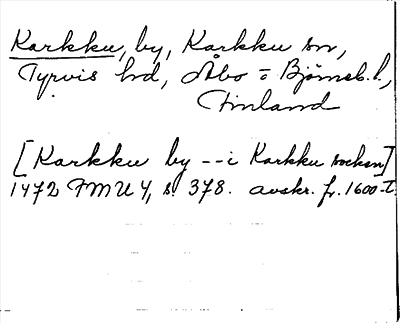 Karkku, by, Karkku sn,
Tyrvis hd, Åbo o Björneb. l.,
Finland
[Karkku by -- i Karkku socken]
1472 FMU 4, s. 378. avskr. fr. 1600-t.